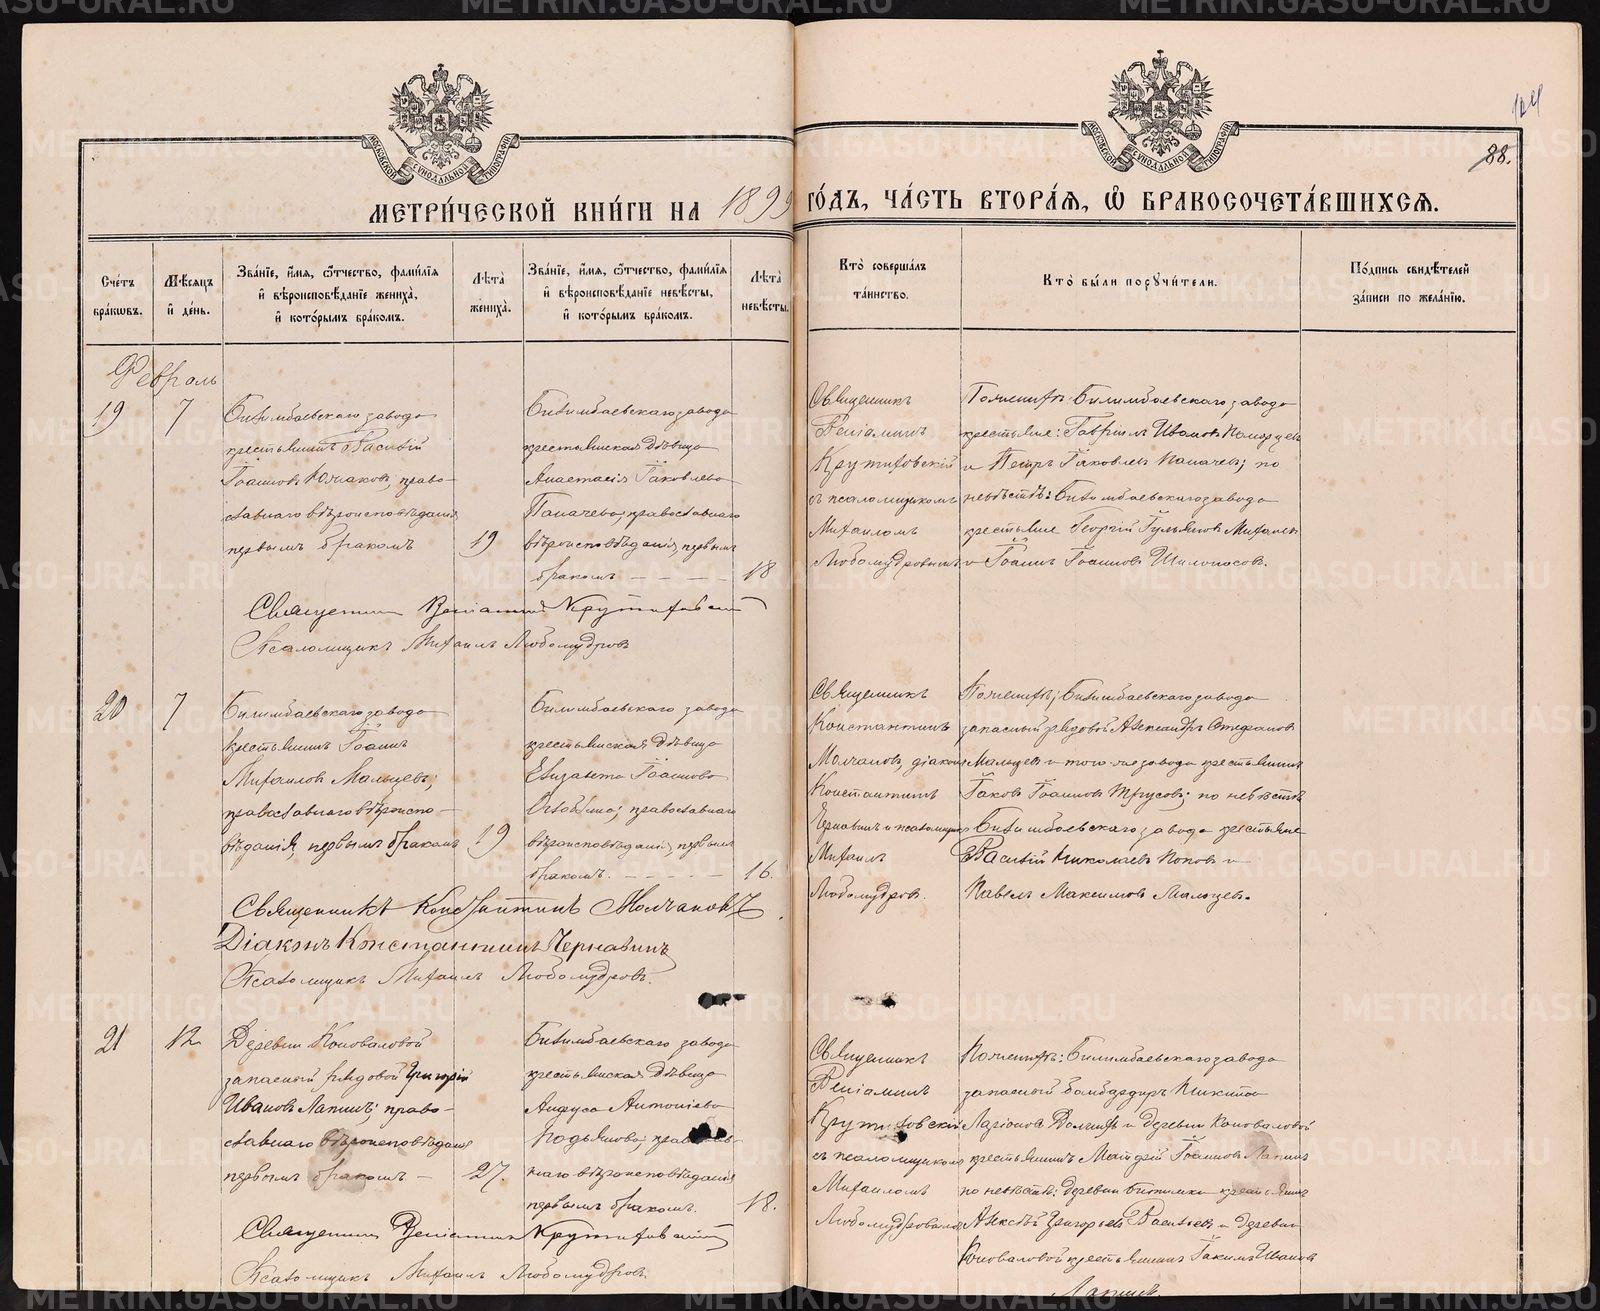 МЕТРИ́ЧЕСКОЙ КНИ́ГИ НА 1899
ГО́ДЪ, ЧА́СТЬ ВТОРА́Я, Ѡ҆ БРАКОСОЧЕТА́ВШИХСЯ.
88.
Сче́тъ бра́кѡвъ.
Мѣ́сяцъ и҆ де́нь.
Зва́нїе, и҆́мя, ѻ҆́тчество, фами́лїя и҆ вѣроисповѣ́данїе жениха̀, и҆ кото́рымъ бра́комъ.
Лѣ́та жениха̀.
Зва́нїе, и҆́мя, ѻ҆́тчество, фами́лїя и҆ вѣроисповѣ́данїе невѣ́сты, и҆ кото́рымъ бра́комъ.
Лѣ́та невѣ́сты.
Кто̀ соверша́лъ та́инство.
Кто̀ бы́ли порꙋчи́тели.
По́дпись свидѣ́телей за́писи по жела́нїю.
Февраль
19
7
Билимбаевскаго завода
крестьянинъ Василій
Іоанновъ право-
славнаго вѣроисповѣданія,
первымъ бракомъ
19
Билимбаевскаго завода
крестьянская дѣвица
Анастасія Іаковлева
Паначева, православнаго
вѣроисповѣданія, первымъ
бракомъ - - - -
18
Священникъ
Веніаминъ
Крутиховскій
съ псаломщикомъ
Михаиломъ
Любомудровымъ
По женихѣ: Билимбаевскаго завода
крестьяне: Гавріилъ Ивановъ
и Петръ Іаковлевъ Паначевъ; по
невѣстѣ: Билимбаевскаго завода
крестьяне Георгій
и Іоаннъ Іоанновъ Шилоносовъ.
Священникъ Веніаминъ Крутиховскій
Псаломщикъ Михаилъ Любомудровъ
20
7
Билимбаевскаго завода
крестьянинъ Іоаннъ
Михаиловъ Мальцевъ;
православнаго вѣроиспо-
вѣданія, первымъ бракомъ
19
Билимбаевскаго завода
крестьянская дѣвица
Елизавета Іоаннова
православнаго
вѣроисповѣданія, первымъ
бракомъ. - - - -
16.
Священникъ
Константинъ
Молчановъ, діаконъ
Константинъ
Чернавинъ и псаломщикъ
Михаилъ
Любомудровъ.
По женихѣ; Билимбаевскаго завода
запасный рядовой Александръ Стефановъ
Мальцевъ и того же завода крестьянинъ
Іаковъ Іоанновъ Трусовъ; по невѣстѣ
Билимбаевскаго завода крестьяне
Василій Николаевъ Поповъ и
Павелъ Максимовъ Мальцевъ.
Священникъ Константинъ Молчановъ
Діаконъ Константинъ Чернавинъ
Псаломщикъ Михаилъ Любомудровъ.
21
12
Деревни Коноваловой
запасный рядовой Григорій
Ивановъ Лапинъ; право-
славнаго вѣроисповѣданія
первымъ бракомъ -
27.
Билимбаевскаго завода
крестьянская дѣвица
Анфуса Антоніева
православ-
наго вѣроисповѣданія
первымъ бракомъ.
18.
Священникъ
Веніаминъ
Крутиховскій
съ псаломщикомъ
Михаиломъ
Любомудровымъ
По женихѣ: Билимбаевскаго завода
запасный бомбардиръ Никита
Ларіоновъ и деревни Коноваловой
крестьянинъ Іоанновъ Лапинъ
по невѣстѣ: деревни Битимки крестьянинъ
Алексѣй Григорьевъ Васильевъ и деревни
Коноваловой крестьянинъ Іакимъ Ивановъ
Лапинъ.
Священникъ Веніаминъ Крутиховскій
Псаломщикъ Михаилъ Любомудровъ
METRIKI.GASO-URAL.RU